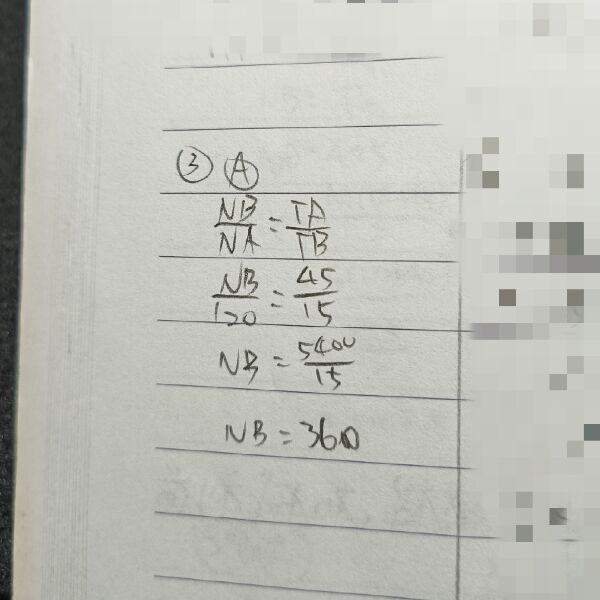 ③ Ⓐ
NB/NA = TA/TB
NB/120 = 45/15
NB = 5400/15
NB = 360